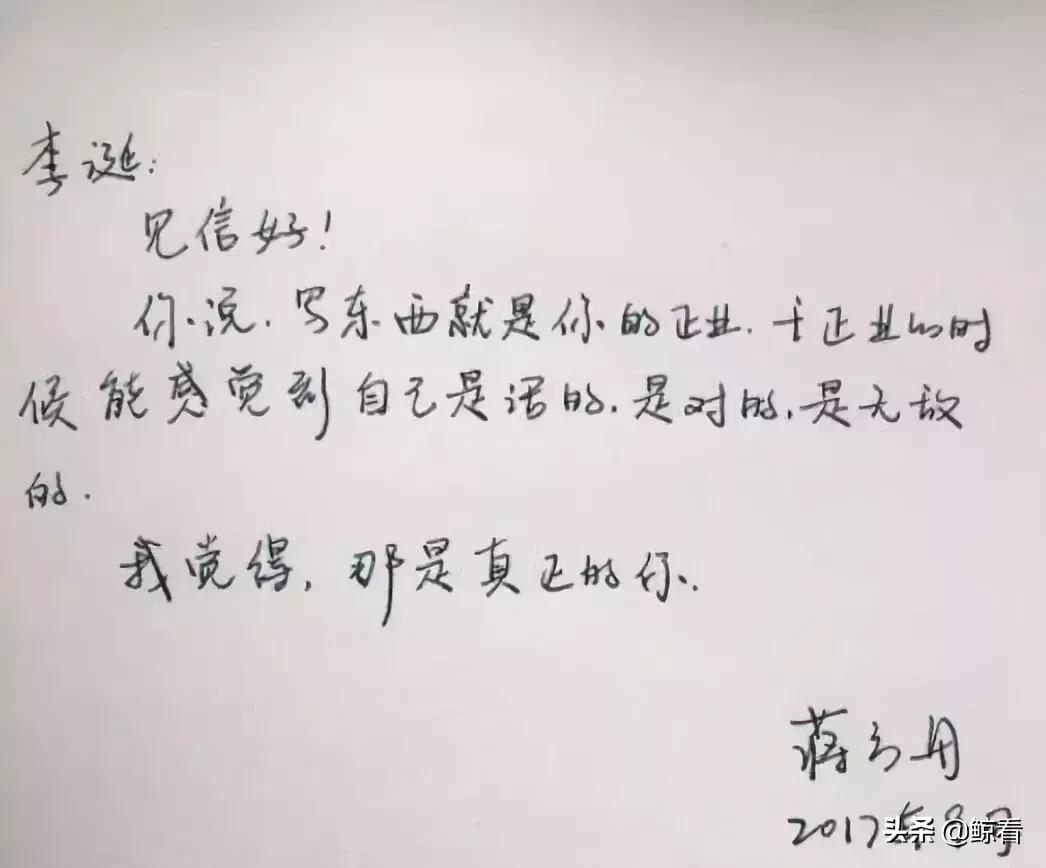 李诞:
见信好!
你说.写东西就是你的正业.干正业的时
候能感觉到自己是活的.是对的.是无敌
的.
我觉得,那是真正的你.
蒋方舟
2017年8月
头条 @鲸看